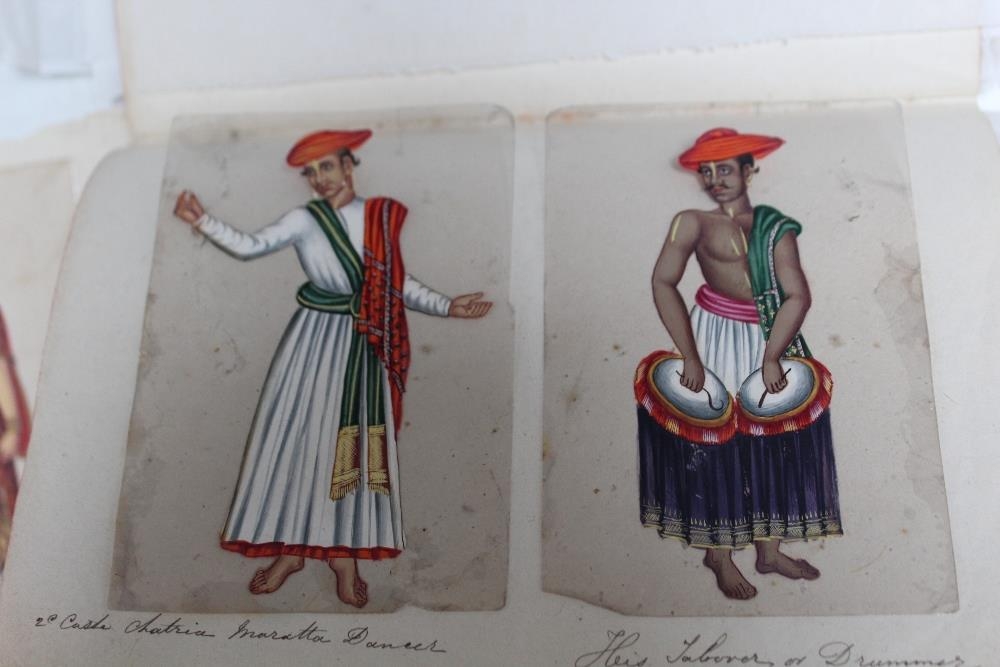 2d Caste Chatria Maratta Dancer
His Taborer or Drummer